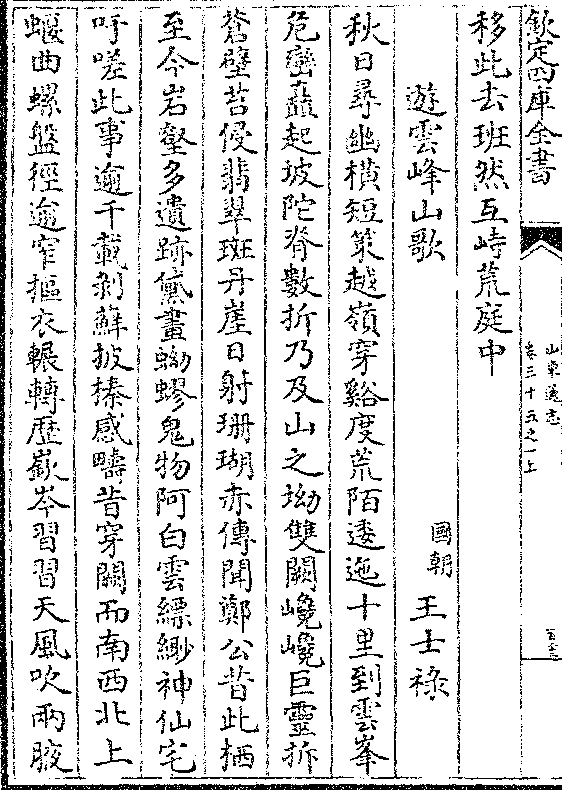 欽定四庫全書
山東通志
卷三十五之一上
移此去班然互峙荒庭中
遊雲峰山歌
國朝 王士祿
秋日尋幽橫短策越嶺穿谿度荒陌逶迤十里到雲峯
危巒矗起坡陀脊數折乃及山之坳雙闕巉巉巨靈拆
蒼壁苔侵翡翠斑丹崖日射珊瑚赤傳聞鄭公昔此栖
至今岩壑多遺跡黛畫蚴蟉鬼物阿白雲縹緲神仙宅
吁嗟此事逾千載剝蘚披榛感疇昔穿闕而南西北上
蝘曲螺盤徑逾窄摳衣輾轉歷嶔岑習習天風吹兩腋